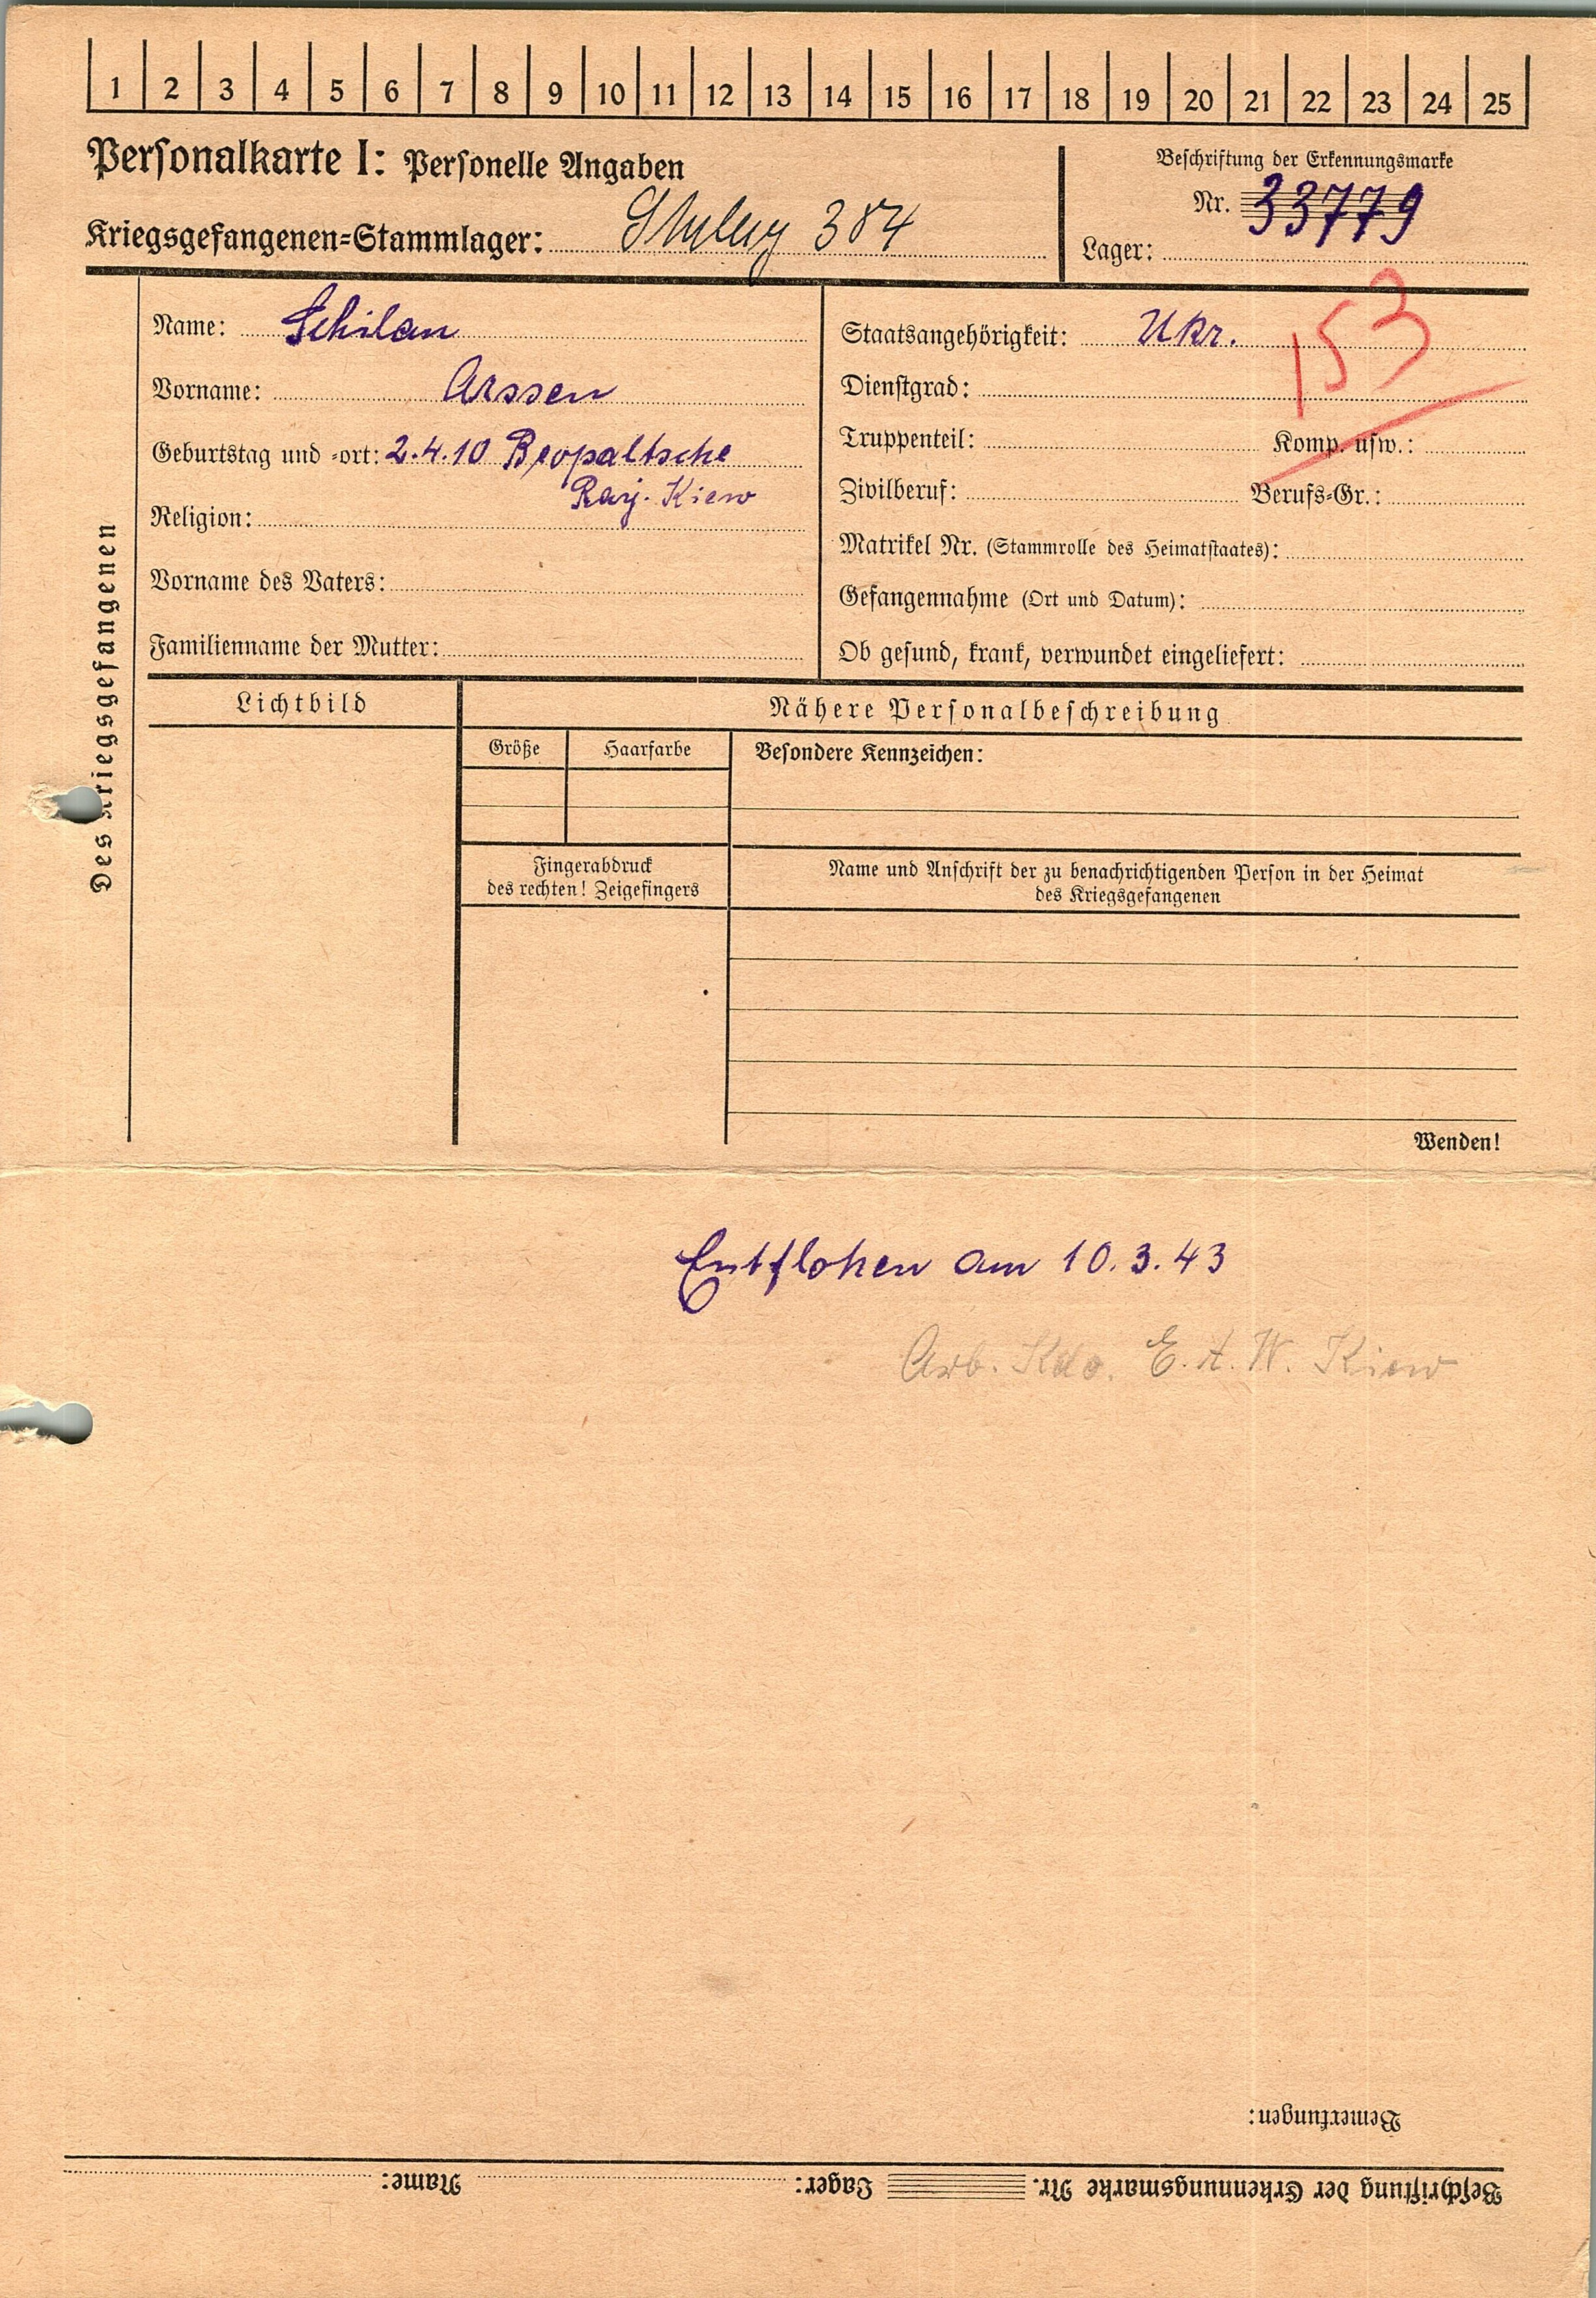 1 2 3 4 5 6 7 8 9 10 11 12 13 14 15 16 17 18 19 20 21 22 23 24 25
Personalkarte I: Personelle Angaben
Beschriftung der Erkennungsmarke
Nr. 33779
Kriegsgefangenen=Stammlager: 384
Lager:
Des Kriegsgefangenen
Name: Schilan
Vorname: Arssen
Geburtstag und =ort: 2.4.10
Raj. Kiew
Religion:
Vorname des Vaters:
Familienname der Mutter:
Staatsangehörigkeit: Ukr.
153
Dienstgrad:
Truppenteil: Komp. usw.:
Zivilberuf: Berufs=Gr.:
Matrikel Nr. (Stammrolle des Heimatstaates):
Gefangennahme (Ort und Datum):
Ob gesund, krank, verwundet eingeliefert:
Lichtbild
Nähere Personalbeschreibung
Größe Haarfarbe Besondere Kennzeichen:
Fingerabdruck
des rechten! Zeigefingers
Name und Anschrift der zu benachrichtigenden Person in der Heimat
des Kriegsgefangenen
Wenden!
Entflohen am 10.3.43
Arb. Kdo. E.A.W. Kiew
Bemerkungen:
Beschriftung der Erkennungsmarke Nr. Lager: Name: